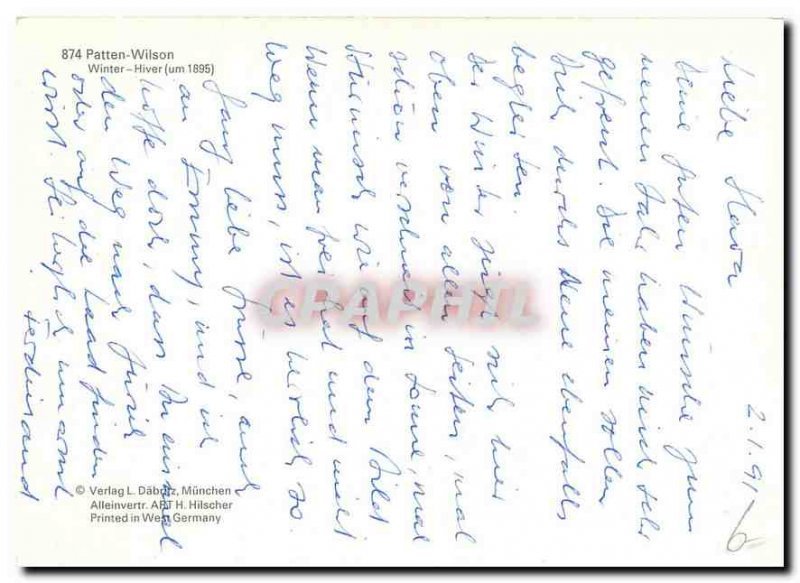 874 Patten-Wilson
Winter–Hiver (um 1895)
2.1.91
Liebe Maria
Deine guten Wünsche zum
neuen Jahr haben mich sehr
gefreut. Die meinen sollen
Dich durchs Neue ebenfalls
begleiten.
Der Winter zeigt sich hier
oben von allen Seiten, mal
schön verschneit in Sonne, mal
stürmisch wie auf dem Bild
Wenn man frei hat und nicht
weg muss, ist es herrlich so.
Ganz liebe Grüsse, auch
an Emmy, und ich
hoffe doch, dass Du einmal
den Weg nach Zürich
oder auf die Laad finden
wirst. Sei herzlich umarmt
Ferdinand
© Verlag L. Däbritz, München
Alleinvertr. ART H. Hilscher
Printed in West Germany
CPAPHIL